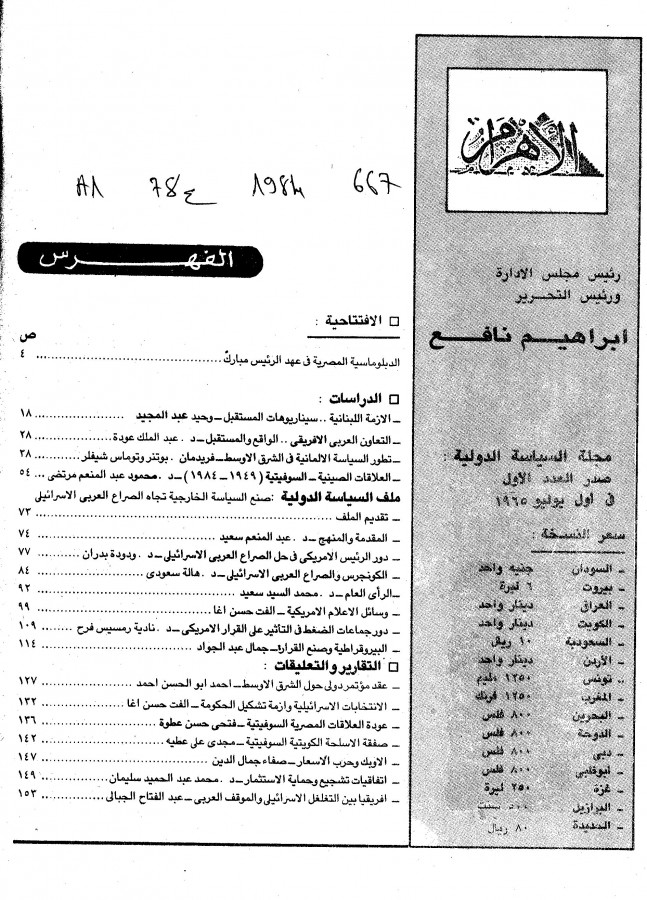 الأهرام
رئيس مجلس الادارة
ورئيس التحرير
ابراهيم نافع
مجلة السياسة الدولية :
صدر العدد الأول
فى أول يوليو ١٩٦٥
سعر النسخة :
ـ السودان جنيه واحد
ـ بيروت ٦ ليرة
ـ العراق دينار واحد
ـ الكويت دينار واحد
ـ السعودية ١٠ ريال
ـ الأردن دينار واحد
ـ تونس ١٢٥٠ مليم
ـ المغرب ١٢٥٠ فرنك
ـ البحرين ٨٠٠ فلس
ـ الدوحة ٨٠٠ فلس
ـ دبى ٨٠٠ فلس
ـ أبوظبى ٨٠٠ فلس
ـ غزة ٢٥٠ ليرة
ـ البرازيل
ـ الحديدة ٨٠ ريال
A1 78 ع 1984 667
الفهرس
□ الافتتاحية :
ص
الدبلوماسية المصرية فى عهد الرئيس مبارك ........ ٤
□ الدراسات :
ـ الازمة اللبنانية .. سيناريوهات المستقبل ـ وحيد عبد المجيد ........ ١٨
ـ التعاون العربى الافريقى .. الواقع والمستقبل ـ د . عبد الملك عودة ........ ٢٨
ـ تطور السياسة الالمانية فى الشرق الاوسط ـ فريدمان . بوتنر وتوماس شيفلر ........ ٣٨
ـ العلاقات الصينية ـ السوفيتية ( ١٩٤٩ ـ ١٩٨٤ ) ـ د. محمود عبد المنعم مرتضى ... ٥٤
ملف السياسة الدولية : صنع السياسة الخارجية تجاه الصراع العربى الاسرائيلى
ـ تقديم الملف ........ ٧٣
ـ المقدمة والمنهج ـ د . عبد المنعم سعيد ........ ٧٤
ـ دور الرئيس الامريكى فى حل الصراع العربى الاسرائيلى ـ د . ودودة بدران ........ ٧٧
ـ الكونجرس والصراع العربى الاسرائيلى ـ د . هالة سعودى ........ ٨٤
ـ الرأى العام ـ د . محمد السيد سعيد ........ ٩٢
ـ وسائل الاعلام الامريكية ـ الفت حسن اغا ........ ٩٩
ـ دور جماعات الضغط فى التأثير على القرار الامريكى ـ د . نادية رمسيس فرح ........ ١٠٩
ـ البيروقراطية وصنع القرار ـ جمال عبد الجواد ........ ١١٤
□ التقارير والتعليقات :
ـ عقد مؤتمر دولى حول الشرق الاوسط ـ احمد ابو الحسن احمد ........ ١٢٧
ـ الانتخابات الاسرائيلية وازمة تشكيل الحكومة ـ الفت حسن اغا ........ ١٣٢
ـ عودة العلاقات المصرية السوفيتية ـ فتحى حسن عطوة ........ ١٣٦
ـ صفقة الاسلحة الكويتية السوفيتية ـ مجدى على عطيه ........ ١٤٢
ـ الاوبك وحرب الاسعار ـ صفاء جمال الدين ........ ١٤٧
ـ اتفاقيات تشجيع وحماية الاستثمار ـ د . محمد عبد الحميد سليمان ........ ١٤٩
ـ افريقيا بين التغلغل الاسرائيلى والموقف العربى ـ عبد الفتاح الجبالى ........ ١٥٣